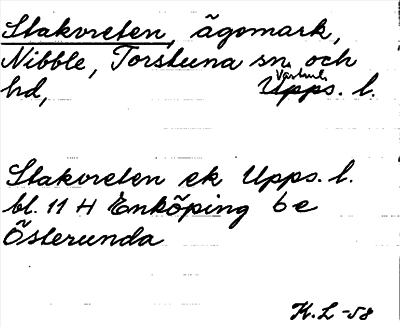 Stakvreten, ägomark,
Nibble, Torstuna sn. och
hd, Västml. Upps. l.
Stakvreten ek Upps. l.
bl. 11 H Enköping 6 e
Österunda
K.L -58